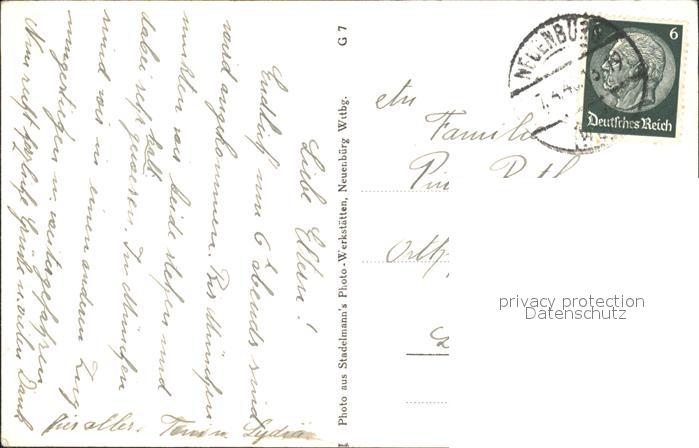 Liebe Eltern!
Endlich um 6 h abends sind
wir angekommen. Bis München
mußten wir beide stehen und
dabei sehr kalt
gewesen. In München
sind wir in einen anderen Zug
umgestiegen u. weitergefahren
Nun recht herzliche Grüße u. vielen Dank
für alles. Toni u. Lydia
Photo aus Stadelmann's Photo-Werkstätten, Neuenbürg Wttbg.
G 7
NEUENBÜRG
6
Deutsches Reich
An
Familie
Ort
privacy protection
Datenschutz